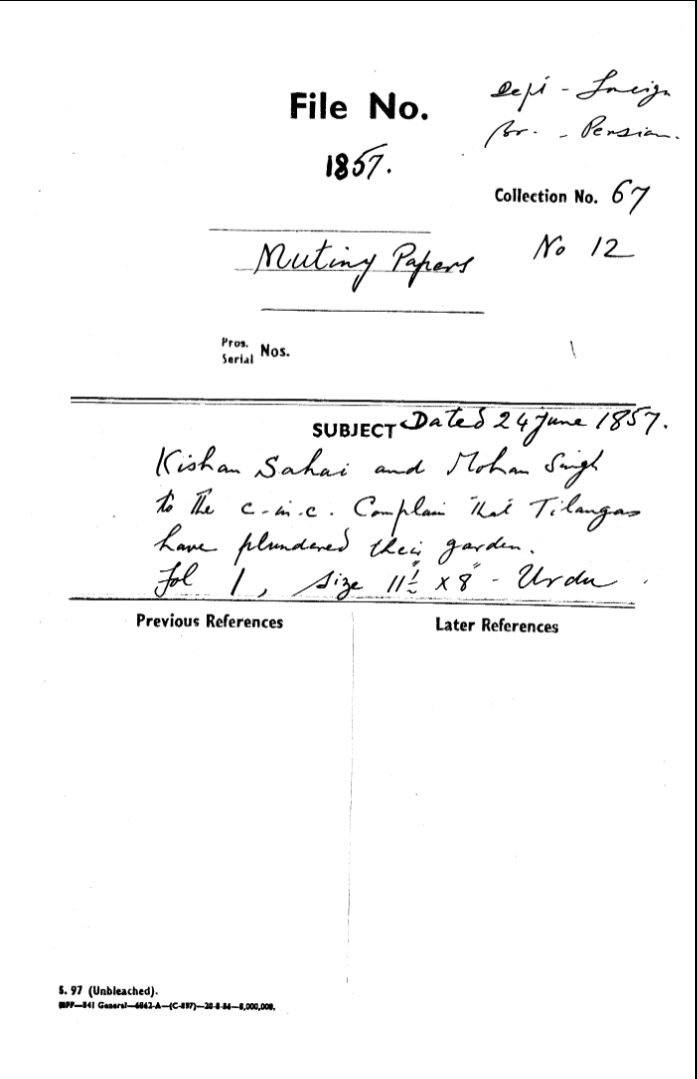 Dept - Foreign
Br. - Persian.
File No.
1857.
Collection No. 67
Mutiny Papers
No 12
Pros.
Serial Nos.
SUBJECT Dated 24 June 1857.
Kishan Sahai and Mohan Singh
to the c-in-c. Complain that Tilangas
have plundered their garden.
Fol 1, Size 11½" x 8" - Urdu.
Previous References
Later References
S. 97 (Unbleached).